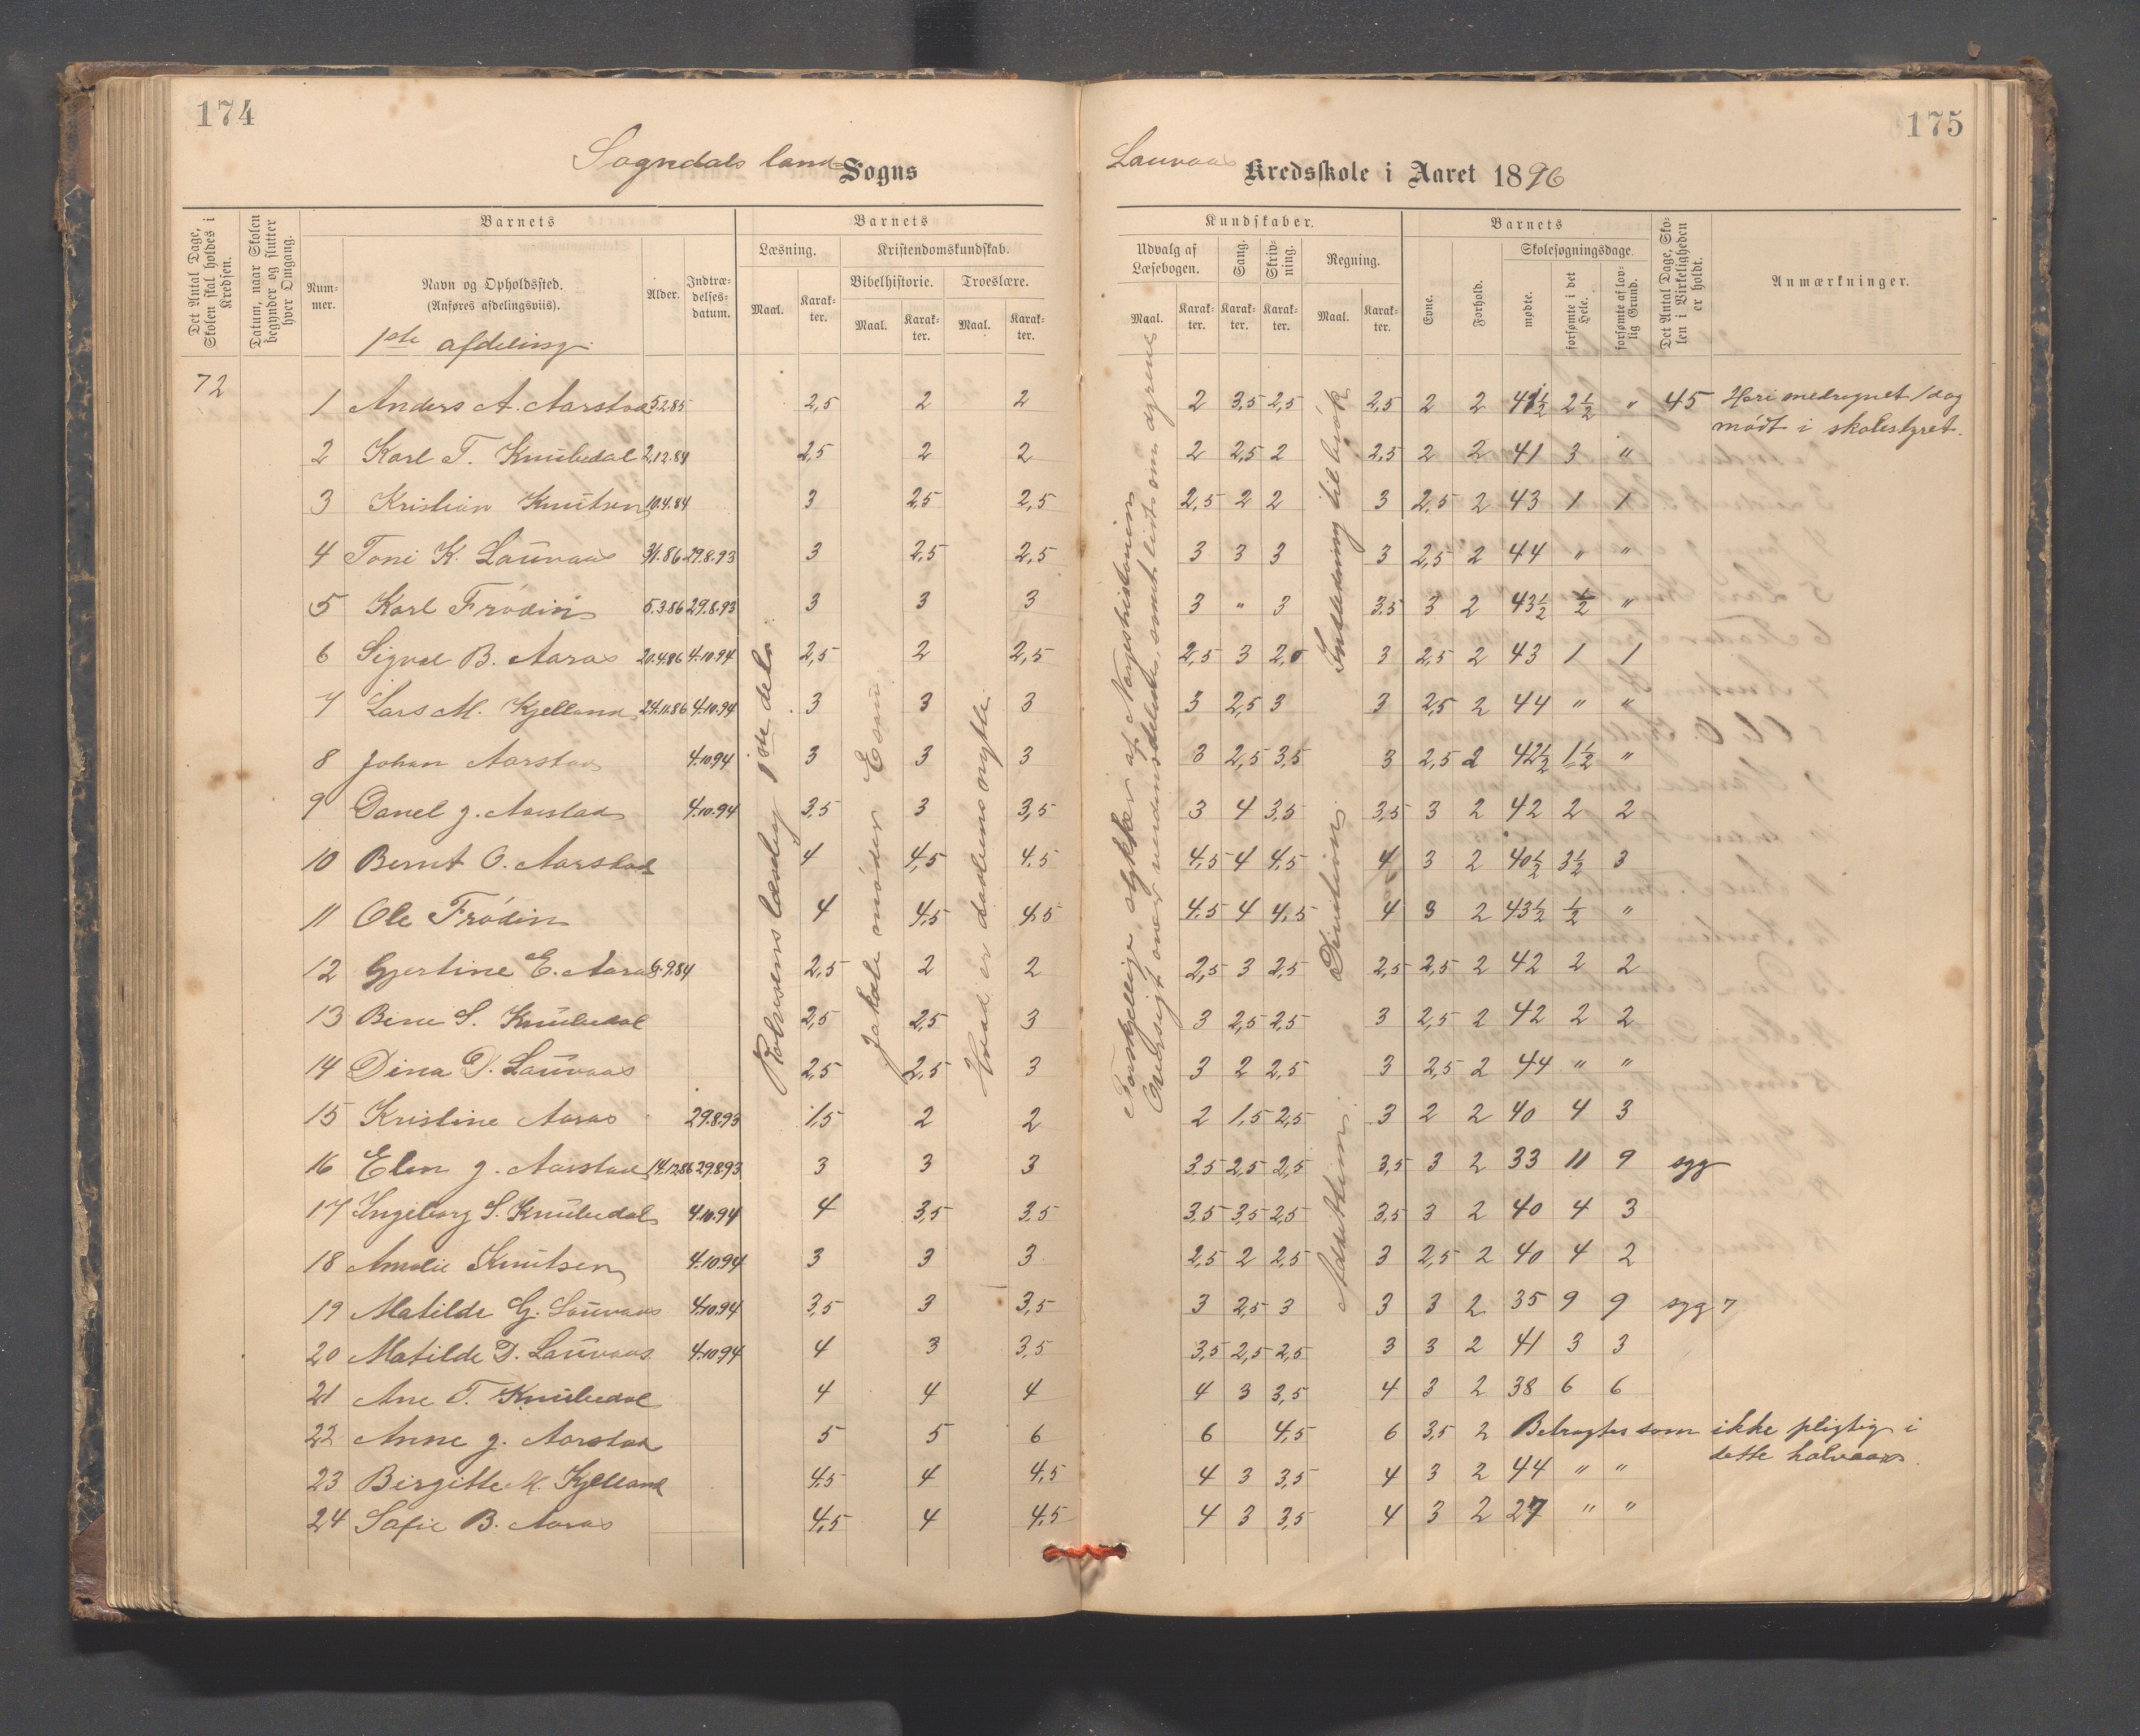 174
Sogndals land Sogns
Det Antal Dage, Skolen skal holdes i Kredsen.
Datum, naar Skolen begynder og slutter hver Omgang.
Barnets
Nummer.
Navn og Opholdssted.
(Anføres afdelingsviis).
Alder.
Indtrædelsesdatum.
Barnets
Læsning.
Maal.
Karakter.
Kristendomskundskab.
Bibelhistorie.
Maal.
Karakter.
Troeslære.
Maal.
Karakter.
1ste afdeling.
72
1 Anders A. Aarstad 5.2.85 2,5 2 2
2 Karl T. Knubedal 2.12.84 2,5 2 2
3 Kristian Knutsen 10.4.84 3 2,5 2,5
4 Toni K. Lauvaas 9/1.86 29.8.93 3 2,5 2,5
5 Karl Frödin 5.3.86 29.8.93 3 3 3
6 Sigval B. Aaras 20.4.86 4.10.94 2,5 2 2,5
7 Lars M. Kjelland 24.11.86 4.10.94 3 3 3
8 Johan Aarstad 4.10.94 3 3 3
9 Danel J. Aarstad 4.10.94 3,5 3 3,5
10 Bernt O. Aarstad 4 4,5 4,5
11 Ole Frödin 4 4,5 4,5
12 Gjertine E. Aaras 9.9.84 2,5 2 2
13 Bine S. Knubedal 2,5 2,5 3
14 Dina D. Lauvaas 2,5 2,5 3
15 Kristine Aaras 29.8.93 1,5 2 2
16 Elen J. Aarstad 14.12.86 29.8.93 3 3 3
17 Ingeborg S. Knubedal 4.10.94 4 3,5 3,5
18 Amalie Knutsen 4.10.94 3 3 3
19 Matilde G. Lauvaas 4.10.94 3,5 3 3,5
20 Matilde D. Lauvaas 4.10.94 4 3 3,5
21 Ane T. Knubedal 4 4 4
22 Anne J. Aarstad 5 5 6
23 Birgitte M. Kjelland 4,5 4 4,5
24 Sofie B. Aaras 4,5 4 4,5
Rolvsens læsebog 1ste del.
Jakob møder Esau
Hvad er daabens nytte
175
Lauvaas Kredsskole i Aaret 1896
Kundskaber.
Udvalg af Læsebogen.
Maal.
Karakter.
Sang.
Karakter.
Skrivning.
Karakter.
Regning.
Maal.
Karakter.
Barnets
Evne.
Forhold.
Skolesøgningsdage.
mødte.
forsømte i det Hele.
forsømte af lovlig Grund.
Det Antal Dage, Skolen i Virkeligheden er holdt.
Anmærkninger.
2 3,5 2,5 2,5 2 2 41½ 2½ " 45 Heri medregnet 1 dag
mödt i skolestyret.
2 2,5 2 2,5 2 2 41 3 "
2,5 2 2 3 2,5 2 43 1 1
3 3 3 3 2,5 2 44 " "
3 " 3 3,5 3 2 43½ ½ "
2,5 3 2,5 3 2,5 2 43 1 1
3 2,5 3 3 2,5 2 44 " "
3 2,5 3,5 3 2,5 2 42½ 1½ "
3 4 3,5 3,5 3 2 42 2 2
4,5 4 4,5 4 3 2 40½ 3½ 3
4,5 4 4,5 4 3 2 43½ ½ "
2,5 3 2,5 2,5 2,5 2 42 2 2
3 2,5 2,5 3 2,5 2 42 2 2
3 2 2,5 3 2,5 2 44 " "
2 1,5 2,5 3 2 2 40 4 3
3,5 2,5 2,5 3,5 3 2 33 11 9 syg
3,5 3,5 2,5 3,5 3 2 40 4 3
2,5 2 2,5 3 2,5 2 40 4 2
3 2,5 3 3 3 2 35 9 9 syg 7
3,5 2,5 2,5 3 3 2 41 3 3
4 3 3,5 4 3 2 38 6 6
6 4,5 6 3,5 2 Betragtes som ikke pligtig i
dette halvaar.
4 3 3,5 4 3 2 44 " "
4 3 3,5 4 3 2 27 " "
Forskjellige stykker af Norgeshistorien
Oversigt over verdensdelene, samt lidt om dyrene
Indledning til brök
Division
Addition.